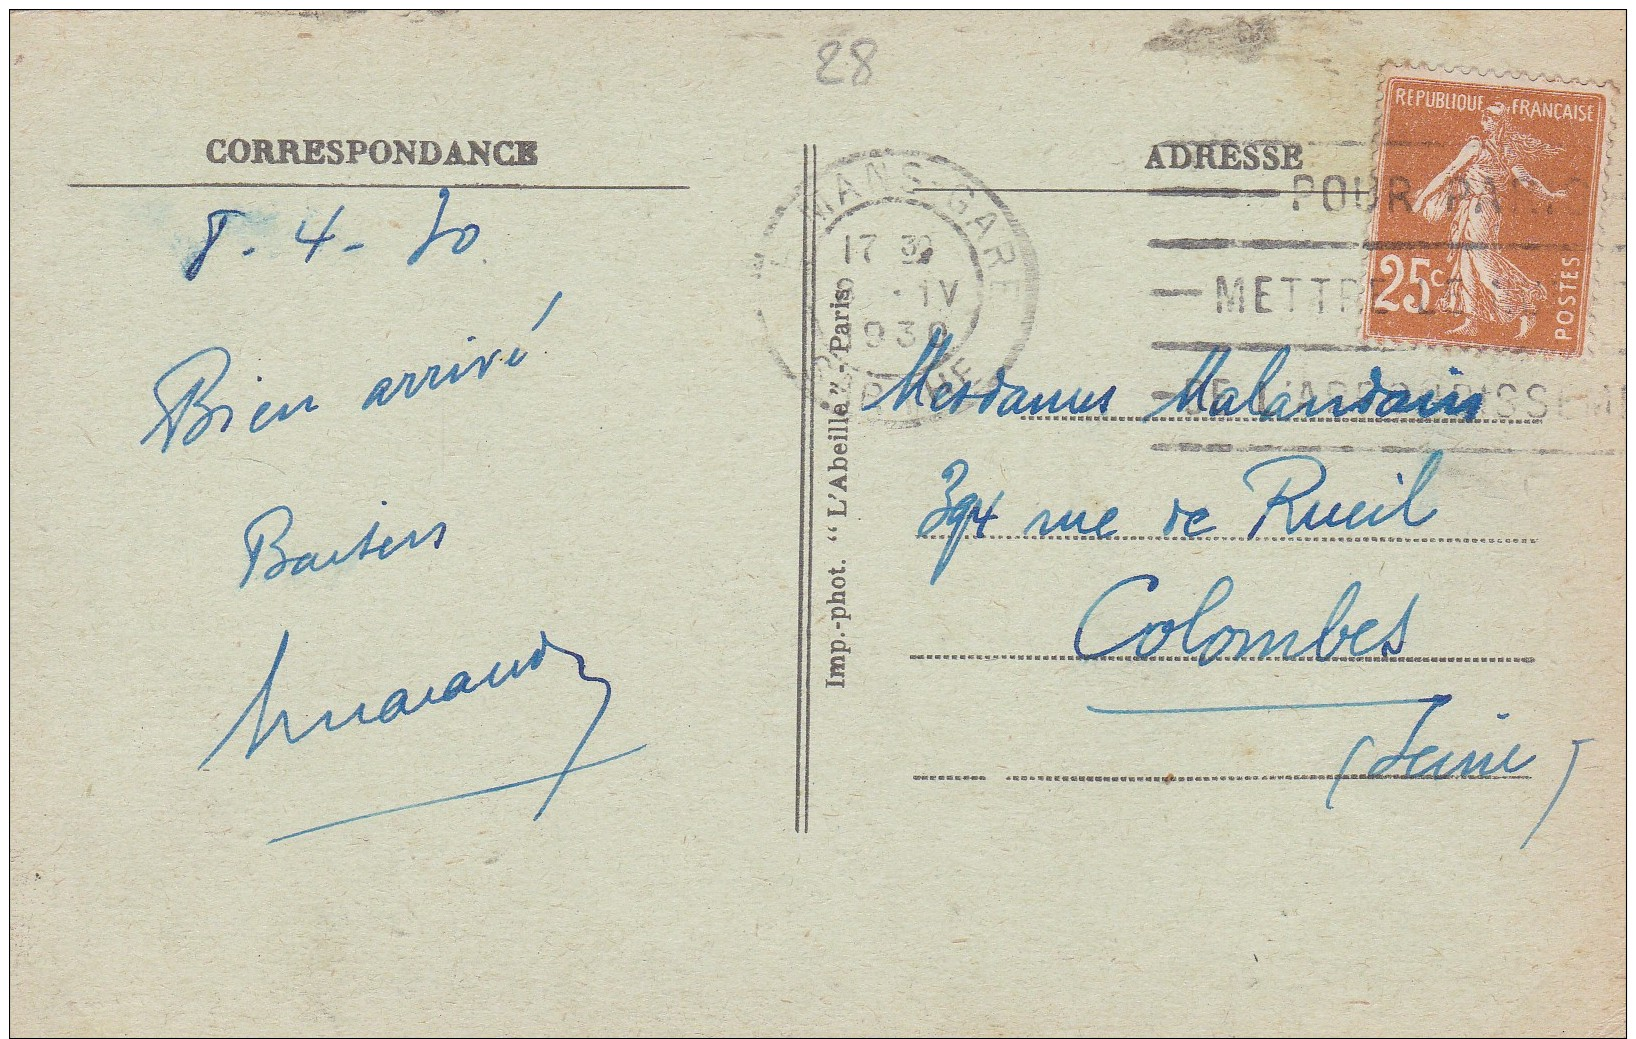 28
CORRESPONDANCE
8-4-30
Bien arrivé
Baisers
Imp.-phot. "L'Abeille"-Paris
MANS-GARE
17 30
-IV
1930
ADRESSE
REPUBLIQUE FRANÇAISE
25c
POSTES
POUR PARIS
METTRE LE N°
DE L'ARRONDISSEM
Mesdames Malandain
394 rue de Rueil
Colombes
(Seine)